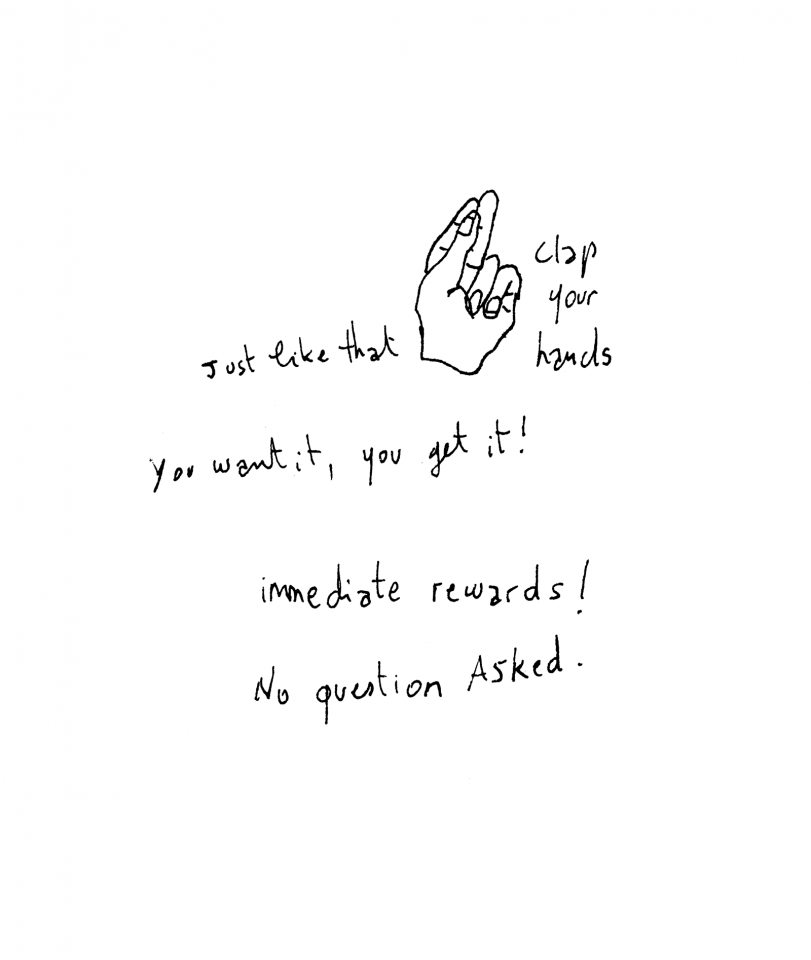 Just like that
clap
your
hands
you want it, you get it!
immediate rewards!
No question Asked.